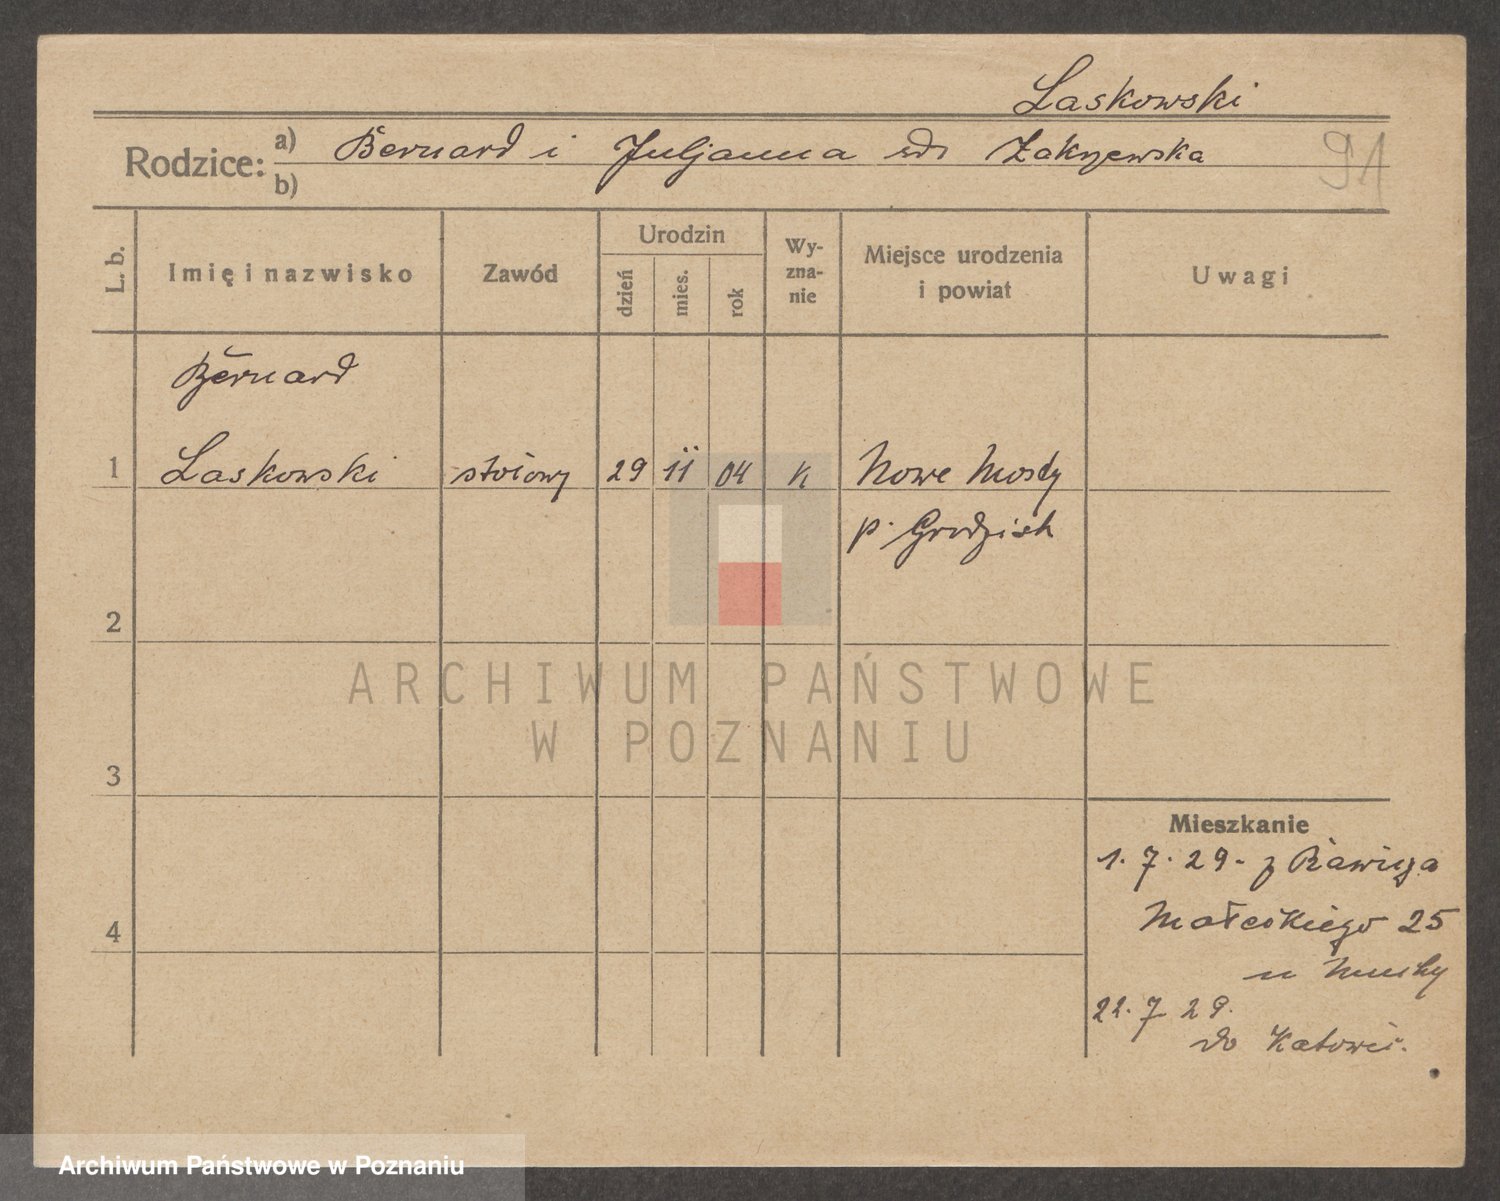 Laskowski
Rodzice: a) Bernard i Juljanna zd. Zakrzewska 91
b)
L. b. Imię i nazwisko Zawód Urodzin dzień mies. rok Wy-zna-nie Miejsce urodzenia i powiat Uwagi
Bernard
1 Laskowski 29 11 04 k Nowe Mosty
p. Grodzisk
2
ARCHIWUM PAŃSTWOWE
W POZNANIU
3
Mieszkanie
1. 7. 29 - z Rawicza
4 Małeckiego 25
u
22. 7 29.
do Katowic.
Archiwum Państwowe w Poznaniu